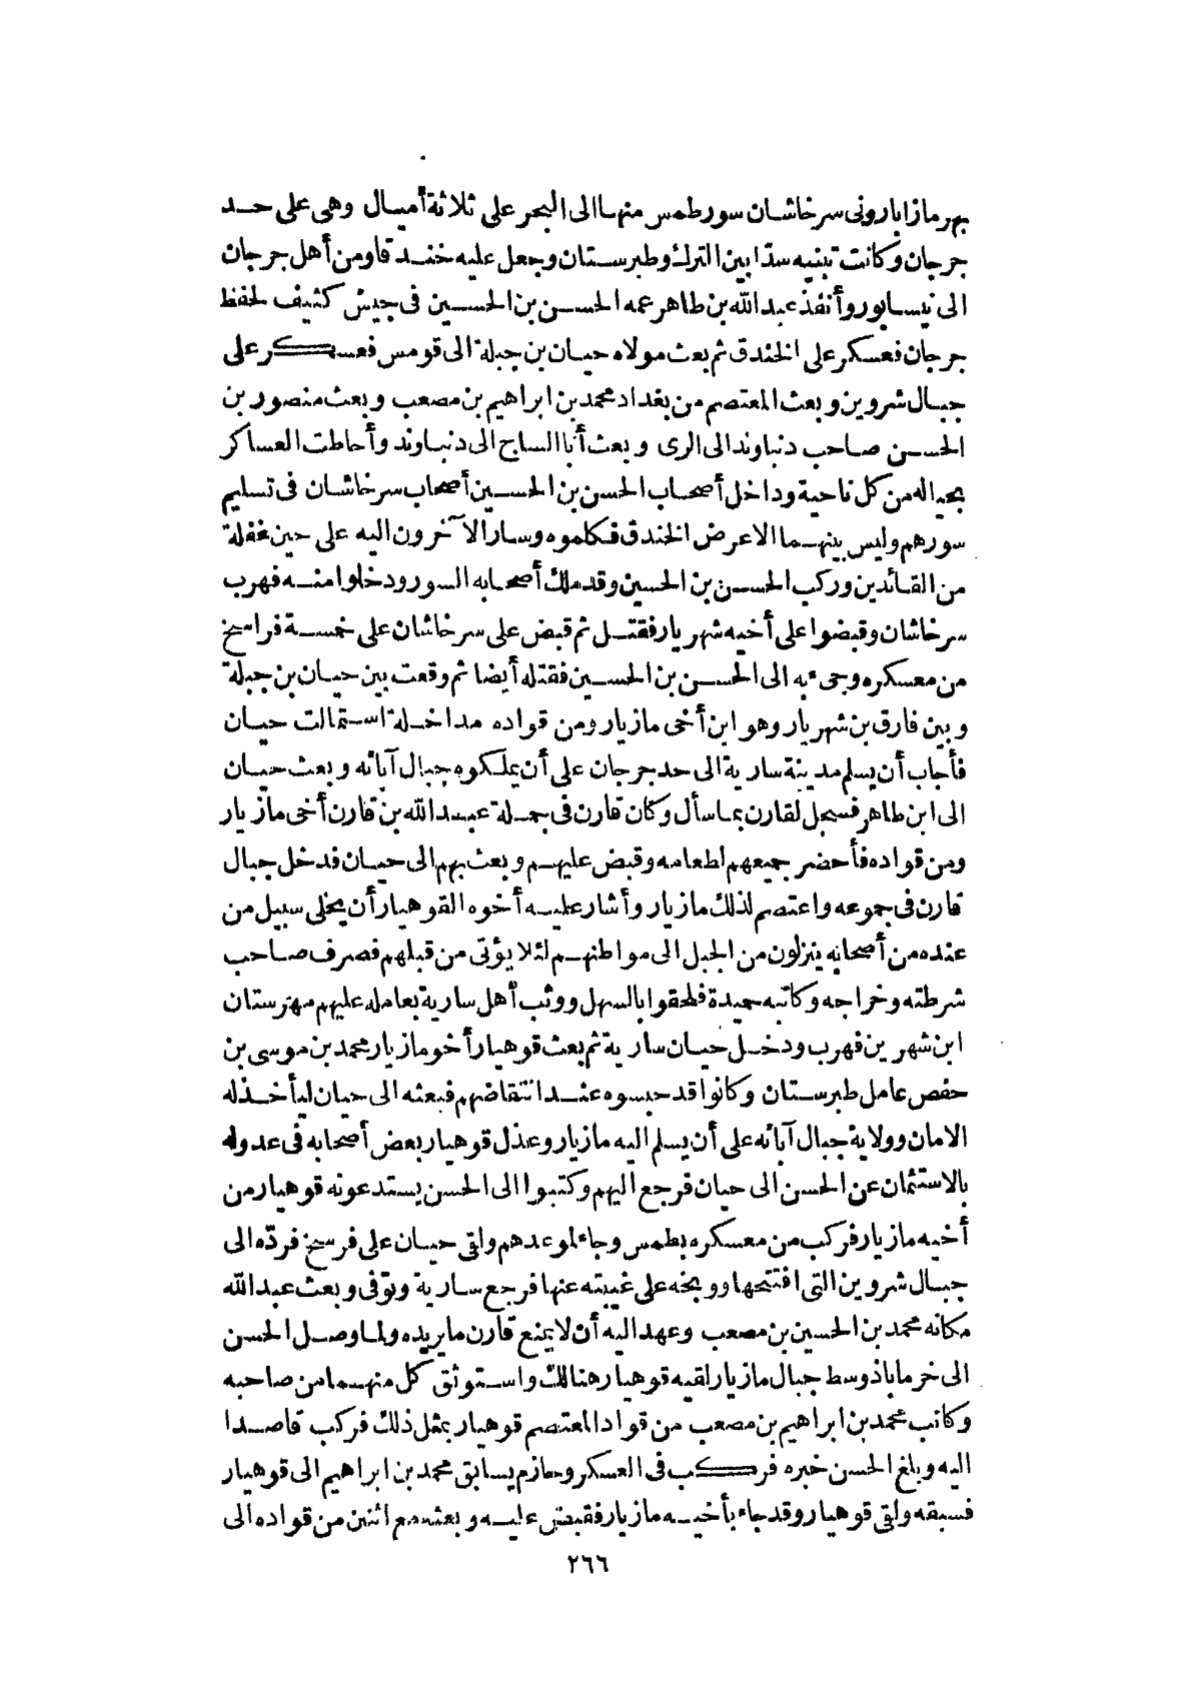 بهرمازابارونى سرخاشان سور طمس منها الى البحر على ثلاثة أميال وهى على حد
جرجان وكانت تبنيه سدّا بين الترك وطبرستان وجعل عليه خندقا ومن أهل جرجان
الى نيسابور وأنفذ عبد الله بن طاهر عمه الحسن بن الحسين فى جيش كثيف لحفظ
جرجان فعسكر على الخندق ثم بعث مولاه حيان بن جبلة الى قومس فعسكر على
جبال شروين وبعث المعتصم من بغداد محمد بن ابراهيم بن مصعب وبعث منصور بن
الحسن صاحب دنباوند الى الرى وبعث أبا الساج الى دنباوند وأحاطت العساكر
بحياله من كل ناحية وداخل أصحاب الحسن بن الحسين أصحاب سرخاشان فى تسليم
سورهم وليس بينهما الا عرض الخندق فكلموه وسار الآخرون اليه على حين غفلة
من القائدين وركب الحسن بن الحسين وقد ملك أصحابه السور ودخلوا منه فهرب
سرخاشان وقبضوا على أخيه شهريار فقتل ثم قبض على سرخاشان على خمسة فراسخ
من معسكره وجىء به الى الحسن بن الحسين فقتله أيضا ثم وقعت بين حيان بن جبلة
وبين فارق بن شهريار وهو ابن أخى مازيار ومن قواده مداخلة استمالت حيان
فأجاب أن يسلم مدينة سارية الى حد جرجان على أن يملكوه جبال آبائه وبعث حيان
الى ابن طاهر فسجل لقارن بما سأل وكان قارن فى جملة عبد الله بن قارن أخى مازيار
ومن قواده فأحضر جميعهم لطعامه وقبض عليهم وبعث بهم الى حيان فدخل جبال
قارن فى جموعه واعتصم لذلك مازيار وأشار عليه أخوه القوهيار أن يخلى سبيل من
عنده من أصحابه ينزلون من الجبل الى مواطنهم لئلا يؤتى من قبلهم فصرف صاحب
شرطته وخراجه وكاتبه حميدة فلحقوا بالسهل ووثب أهل سارية بعامله عليهم مهرستان
ابن شهرين فهرب ودخل حيان سارية ثم بعث قوهيار أخو مازيار محمد بن موسى بن
حفص عامل طبرستان وكانوا قد حبسوه عند انتقاضهم فبعثه الى حيان ليأخذ له
الامان وولاية جبال آبائه على أن يسلم اليه مازيار وعذل قوهيار بعض أصحابه فى عدوله
بالاستئمان عن الحسن الى حيان فرجع اليهم وكتبوا الى الحسن يستدعونه قوهيار من
أخيه مازيار فركب من معسكره بطمس وجاء لموعدهم ولقى حيان على فرسخ فردّه الى
جبال شروين التى افتتحها ووبخه على غيبته عنها فرجع سارية وتوفى وبعث عبد الله
مكانه محمد بن الحسين بن مصعب وعهد اليه أن لا يمنع قارن ما يريده ولما وصل الحسن
الى خرماباذ وسط جبال مازيار لقيه قوهيار هنالك واستوثق كل منهما من صاحبه
وكاتب محمد بن ابراهيم بن مصعب من قواد المعتصم قوهيار بمثل ذلك فركب قاصدا
اليه وبلغ الحسن خبره فركب فى العسكر وحازم يسابق محمد بن ابراهيم الى قوهيار
فسبقه ولقى قوهيار وقد جاء بأخيه مازيار فقبض عليه وبعثه مع اثنين من قواده الى
٢٦٦